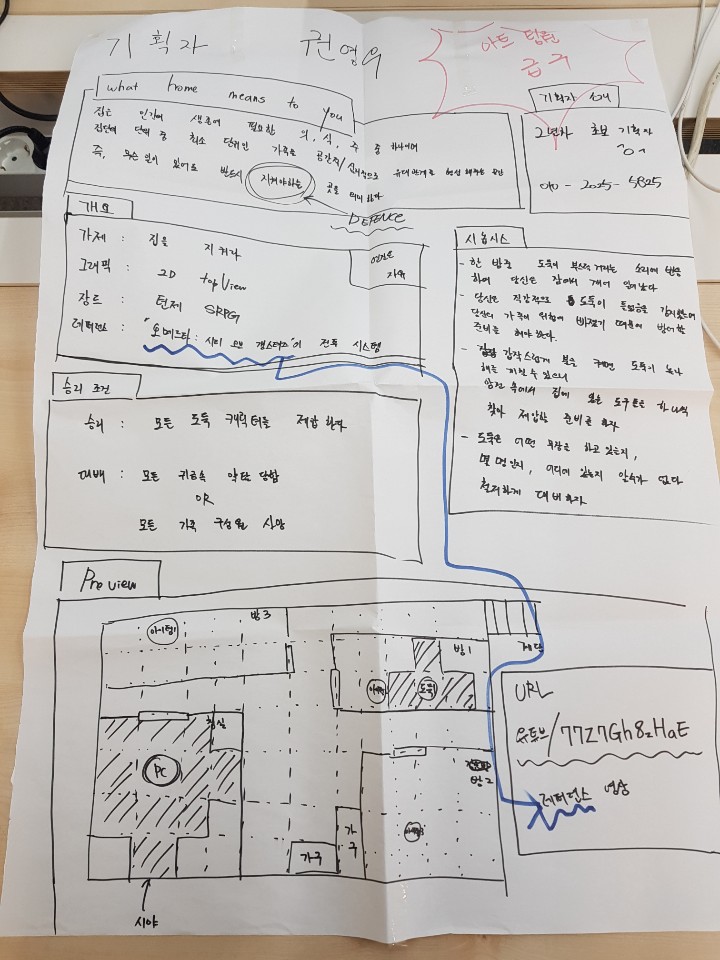 기획자 권영우
아트 팀원
급구
what home means to you
집은 인간이 생존에 필요한 의, 식, 주 중 하나이며
집단의 단위 중 최소 단위인 가족을 공간적/심리적으로 유대관계를 형성해주는 공간
즉, 무슨 일이 있어도 반드시 지켜야하는 곳을 의미 한다
DEFENCE
기획자 소개
2년차 초보 기획자
010-2025-5825
개요
가제 : 집을 지켜라
그래픽 : 2D top View
장르 : 턴제 SRPG
레퍼런스 : "오메르타: 시티 오브 갱스터즈"의 전투 시스템
시놉시스
- 한 밤중 도둑이 부스럭 거리는 소리에 반응
하여 당신은 잠에서 깨어 일어났다
- 당신은 직감적으로 도둑이 들었음을 감지했으며
당신의 가족이 위험에 빠졌기 때문에 방어할
준비를 해야 한다.
- 갑작스럽게 불을 켜면 도둑이 놀라
해를 끼칠 수 있으니
암전 속에서 집에 있는 도구들을 하나씩
찾아 제압할 준비를 하자
- 도둑은 어떤 무장을 하고 있는지,
몇 명인지, 어디에 있는지 알수가 없다
철저하게 대비하자
승리 조건
승리 : 모든 도둑 캐릭터를 제압 한다
패배 : 모든 귀금속 약탈 당함
OR
모든 가족 구성원 사망
Preview
방3
아이템
방1
계단
도둑
침실
PC
방2
가구
가구
시야
URL
유튜브/77Z7Gh8zHaE
레퍼런스 영상